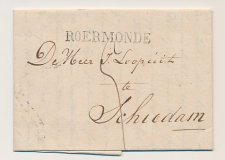 ROERMONDE
De Heer J. Loopuit
te
Schiedam